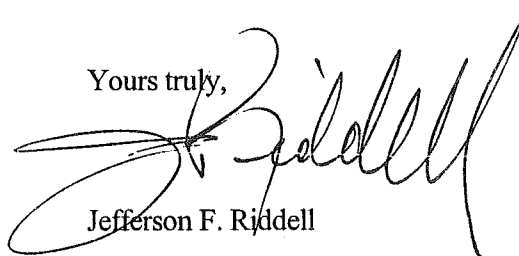 Yours truly,
J Riddell
Jefferson F. Riddell